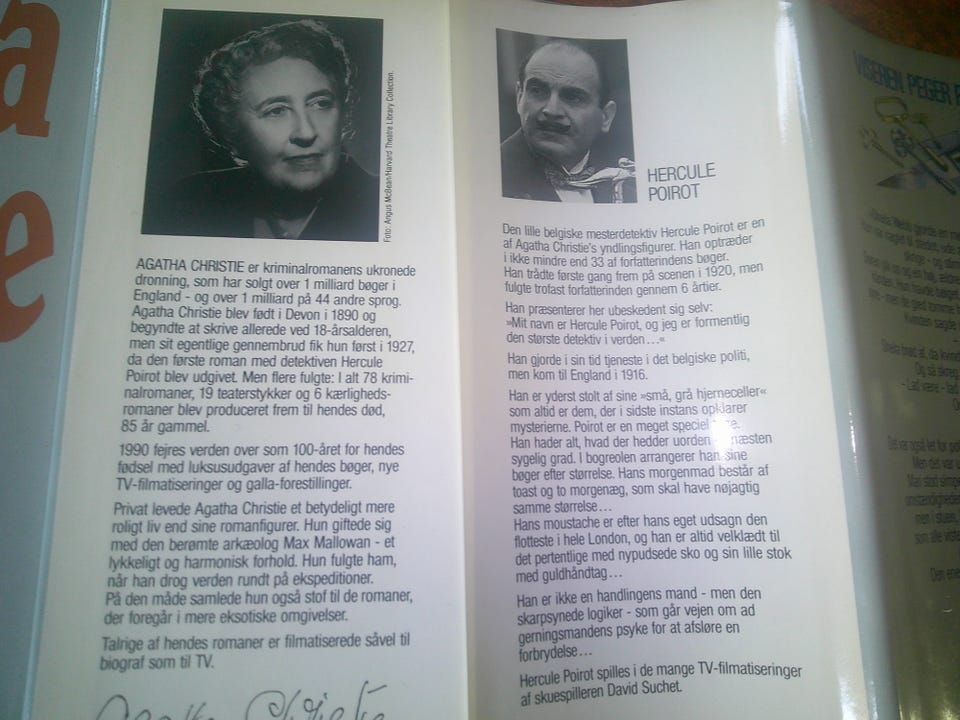 a
e
Foto: Angus McBean/Harvard Theatre Library Collection.
AGATHA CHRISTIE er kriminalromanens ukronede
dronning, som har solgt over 1 milliard bøger i
England - og over 1 milliard på 44 andre sprog.
Agatha Christie blev født i Devon i 1890 og
begyndte at skrive allerede ved 18-årsalderen,
men sit egentlige gennembrud fik hun først i 1927,
da den første roman med detektiven Hercule
Poirot blev udgivet. Men flere fulgte: I alt 78 krimi-
nalromaner, 19 teaterstykker og 6 kærligheds-
romaner blev produceret frem til hendes død,
85 år gammel.
1990 fejres verden over som 100-året for hendes
fødsel med luksusudgaver af hendes bøger, nye
TV-filmatiseringer og galla-forestillinger.
Privat levede Agatha Christie et betydeligt mere
roligt liv end sine romanfigurer. Hun giftede sig
med den berømte arkæolog Max Mallowan - et
lykkeligt og harmonisk forhold. Hun fulgte ham,
når han drog verden rundt på ekspeditioner.
På den måde samlede hun også stof til de romaner,
der foregår i mere eksotiske omgivelser.
Talrige af hendes romaner er filmatiserede såvel til
biograf som til TV.
Agatha Christie
HERCULE
POIROT
Den lille belgiske mesterdetektiv Hercule Poirot er en
af Agatha Christie's yndlingsfigurer. Han optræder
i ikke mindre end 33 af forfatterindens bøger.
Han trådte første gang frem på scenen i 1920, men
fulgte trofast forfatterinden gennem 6 årtier.
Han præsenterer her ubeskedent sig selv:
»Mit navn er Hercule Poirot, og jeg er formentlig
den største detektiv i verden...«
Han gjorde i sin tid tjeneste i det belgiske politi,
men kom til England i 1916.
Han er yderst stolt af sine »små, grå hjerneceller«
som altid er dem, der i sidste instans opklarer
mysterierne. Poirot er en meget speciel
Han hader alt, hvad der hedder uorden næsten
sygelig grad. I bogreolen arrangerer han sine
bøger efter størrelse. Hans morgenmad består af
toast og to morgenæg, som skal have nøjagtig
samme størrelse...
Hans moustache er efter hans eget udsagn den
flotteste i hele London, og han er altid velklædt til
det pertentlige med nypudsede sko og sin lille stok
med guldhåndtag...
Han er ikke en handlingens mand - men den
skarpsynede logiker - som går vejen om ad
gerningsmandens psyke for at afsløre en
forbrydelse...
Hercule Poirot spilles i de mange TV-filmatiseringer
af skuespilleren David Suchet.
VISEREN PEGER